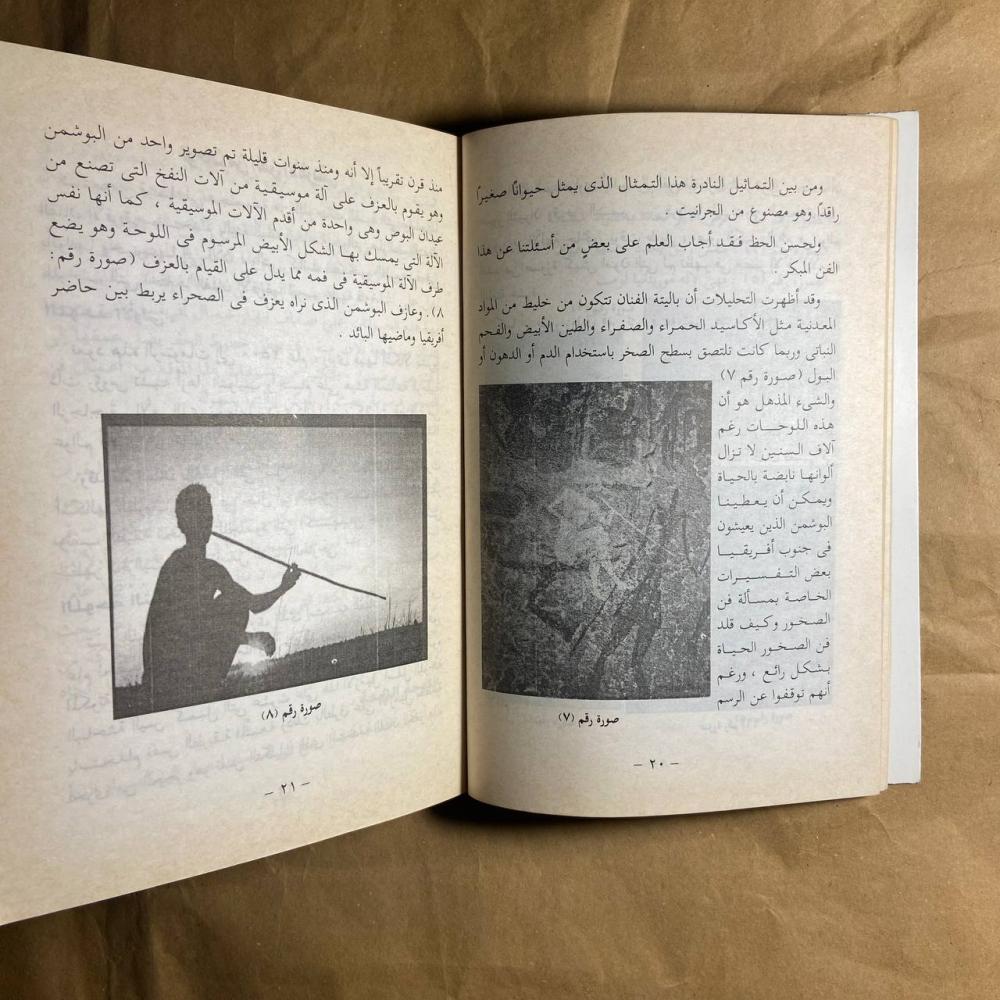 ومن بين التماثيل النادرة هذا التمثال الذى يمثل حيوانًا صغيرًا
راقدًا وهو مصنوع من الجرانيت .
ولحسن الحظ فقد أجاب العلم على بعضٍ من أسئلتنا عن هذا
الفن المبكر .
وقد أظهرت التحليلات أن باليتة الفنان تتكون من خليط من المواد
المعدنية مثل الأكاسيد الحمراء والصفراء والطين الأبيض والفحم
النباتى وربما كانت تلتصق بسطح الصخر باستخدام الدم أو الدهون أو
البول (صورة رقم ٧)
والشىء المذهل هو أن
هذه اللوحات رغم
آلاف السنين لا تزال
ألوانها نابضة بالحياة
ويمكن أن يعطينا
البوشمن الذين يعيشون
فى جنوب أفريقيا
بعض التفسيرات
الخاصة بمسألة فن
الصخور وكيف قلد
فن الصخور الحياة
بشكل رائع ، ورغم
أنهم توقفوا عن الرسم
صورة رقم (٧)
– ٢٠ –
منذ قرن تقريباً إلا أنه ومنذ سنوات قليلة تم تصوير واحد من البوشمن
وهو يقوم بالعزف على آلة موسيقية من آلات النفخ التى تصنع من
عيدان البوص وهى واحدة من أقدم الآلات الموسيقية ، كما أنها نفس
الآلة التى يمسك بها الشكل الأبيض المرسوم فى اللوحة وهو يضع
طرف الآلة الموسيقية فى فمه مما يدل على القيام بالعزف (صورة رقم :
٨). وعازف البوشمن الذى نراه يعزف فى الصحراء يربط بين حاضر
أفريقيا وماضيها البائد .
صورة رقم (٨)
– ٢١ –